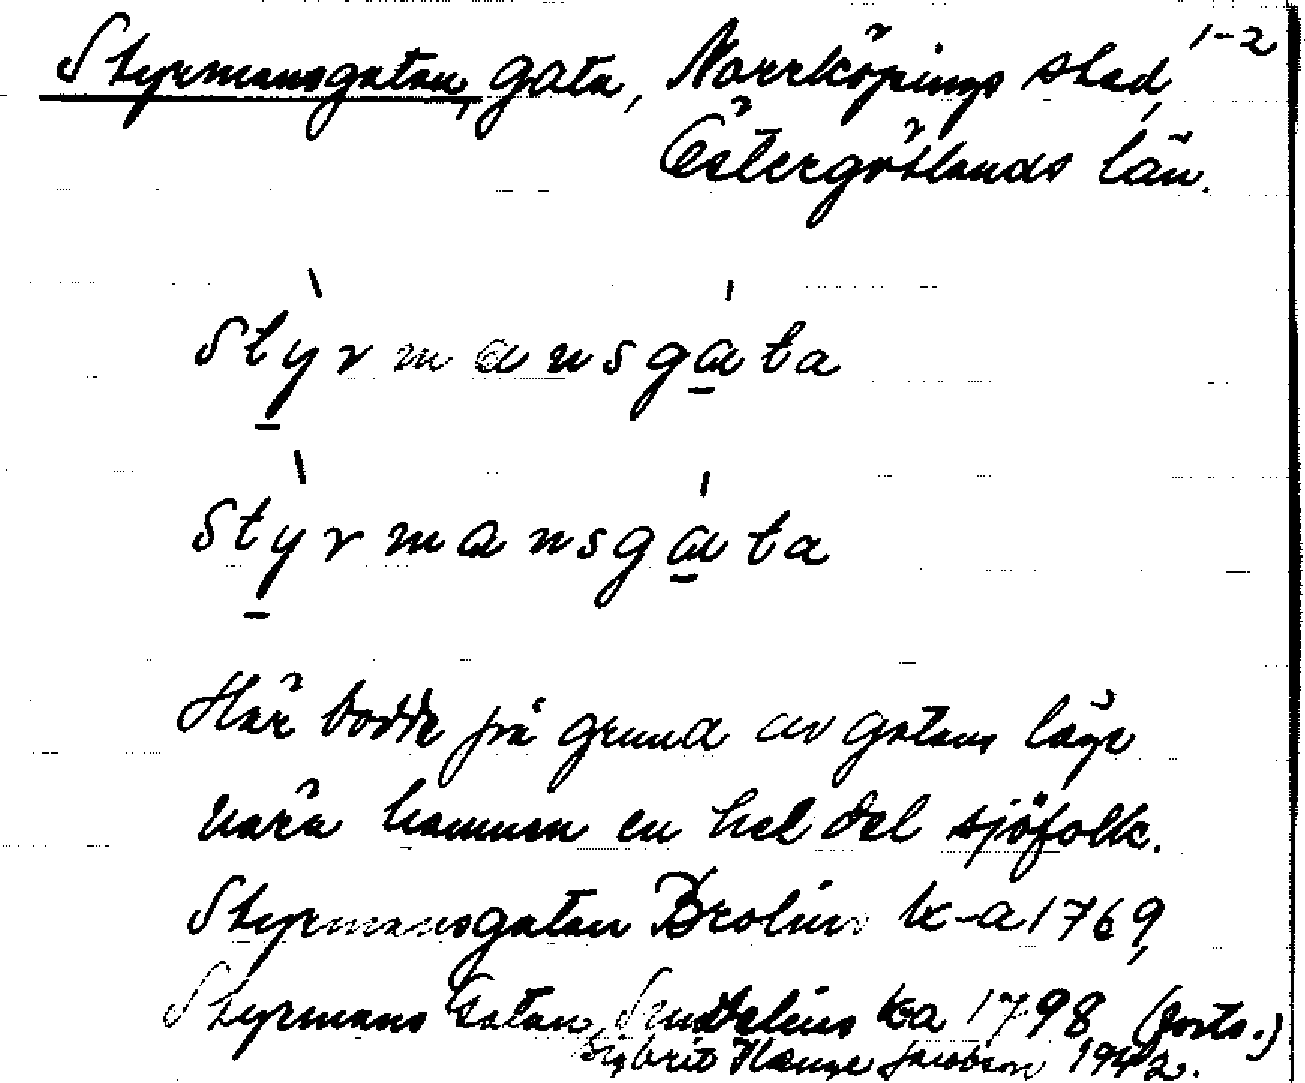 Styrmansgatan, gata, Norrköpings stad, 1-2
Östergötlands län.
Stỳrmansgáta
Stỳrmansgáta
Här bodde på grund av gatans läge
nära hamnen en hel del sjöfolk.
Styrmansgatan Brolin k-a 1769,
Styrmans Gatan, Sundelius ka 1798 (forts.)
Sigbrit Plænge Jacobson 1942.